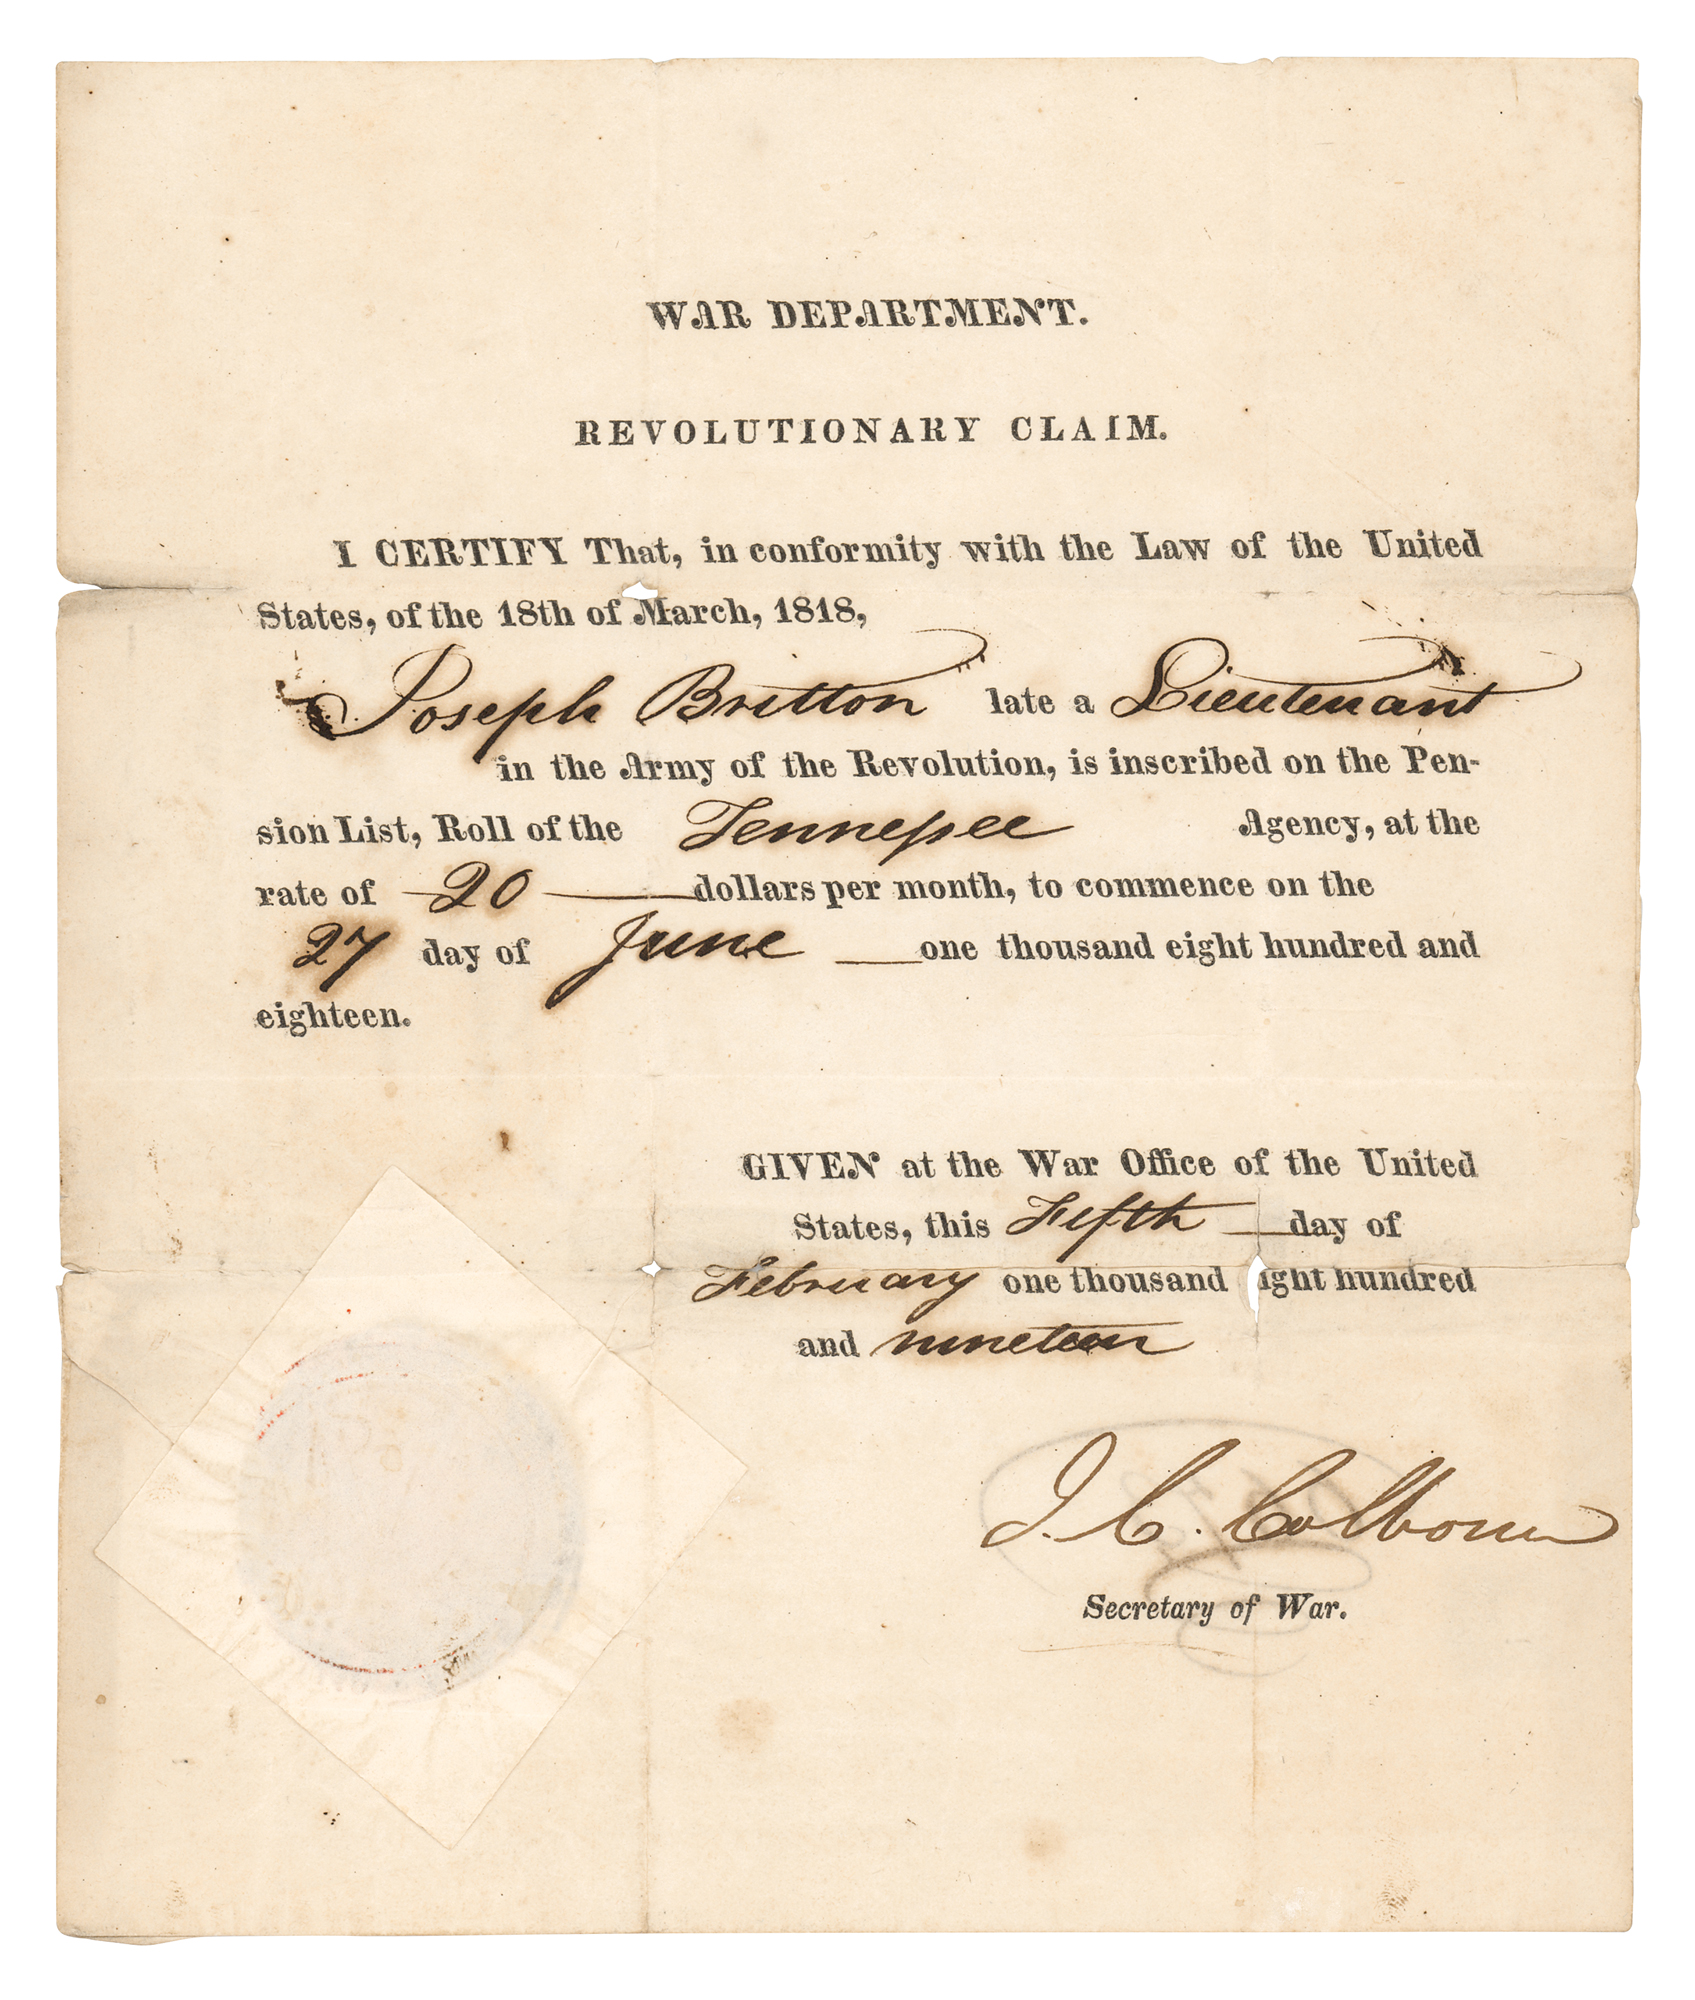 WAR DEPARTMENT.
REVOLUTIONARY CLAIM.
I CERTIFY That, in conformity with the Law of the United
States, of the 18th of March, 1818,
Joseph Britton late a Lieutenant
in the Army of the Revolution, is inscribed on the Pen-
sion List, Roll of the Tennessee Agency, at the
rate of 20 dollars per month, to commence on the
27 day of June one thousand eight hundred and
eighteen.
GIVEN at the War Office of the United
States, this Fifth day of
February one thousand ight hundred
and nineteen
J. C. Calhoun
Secretary of War.